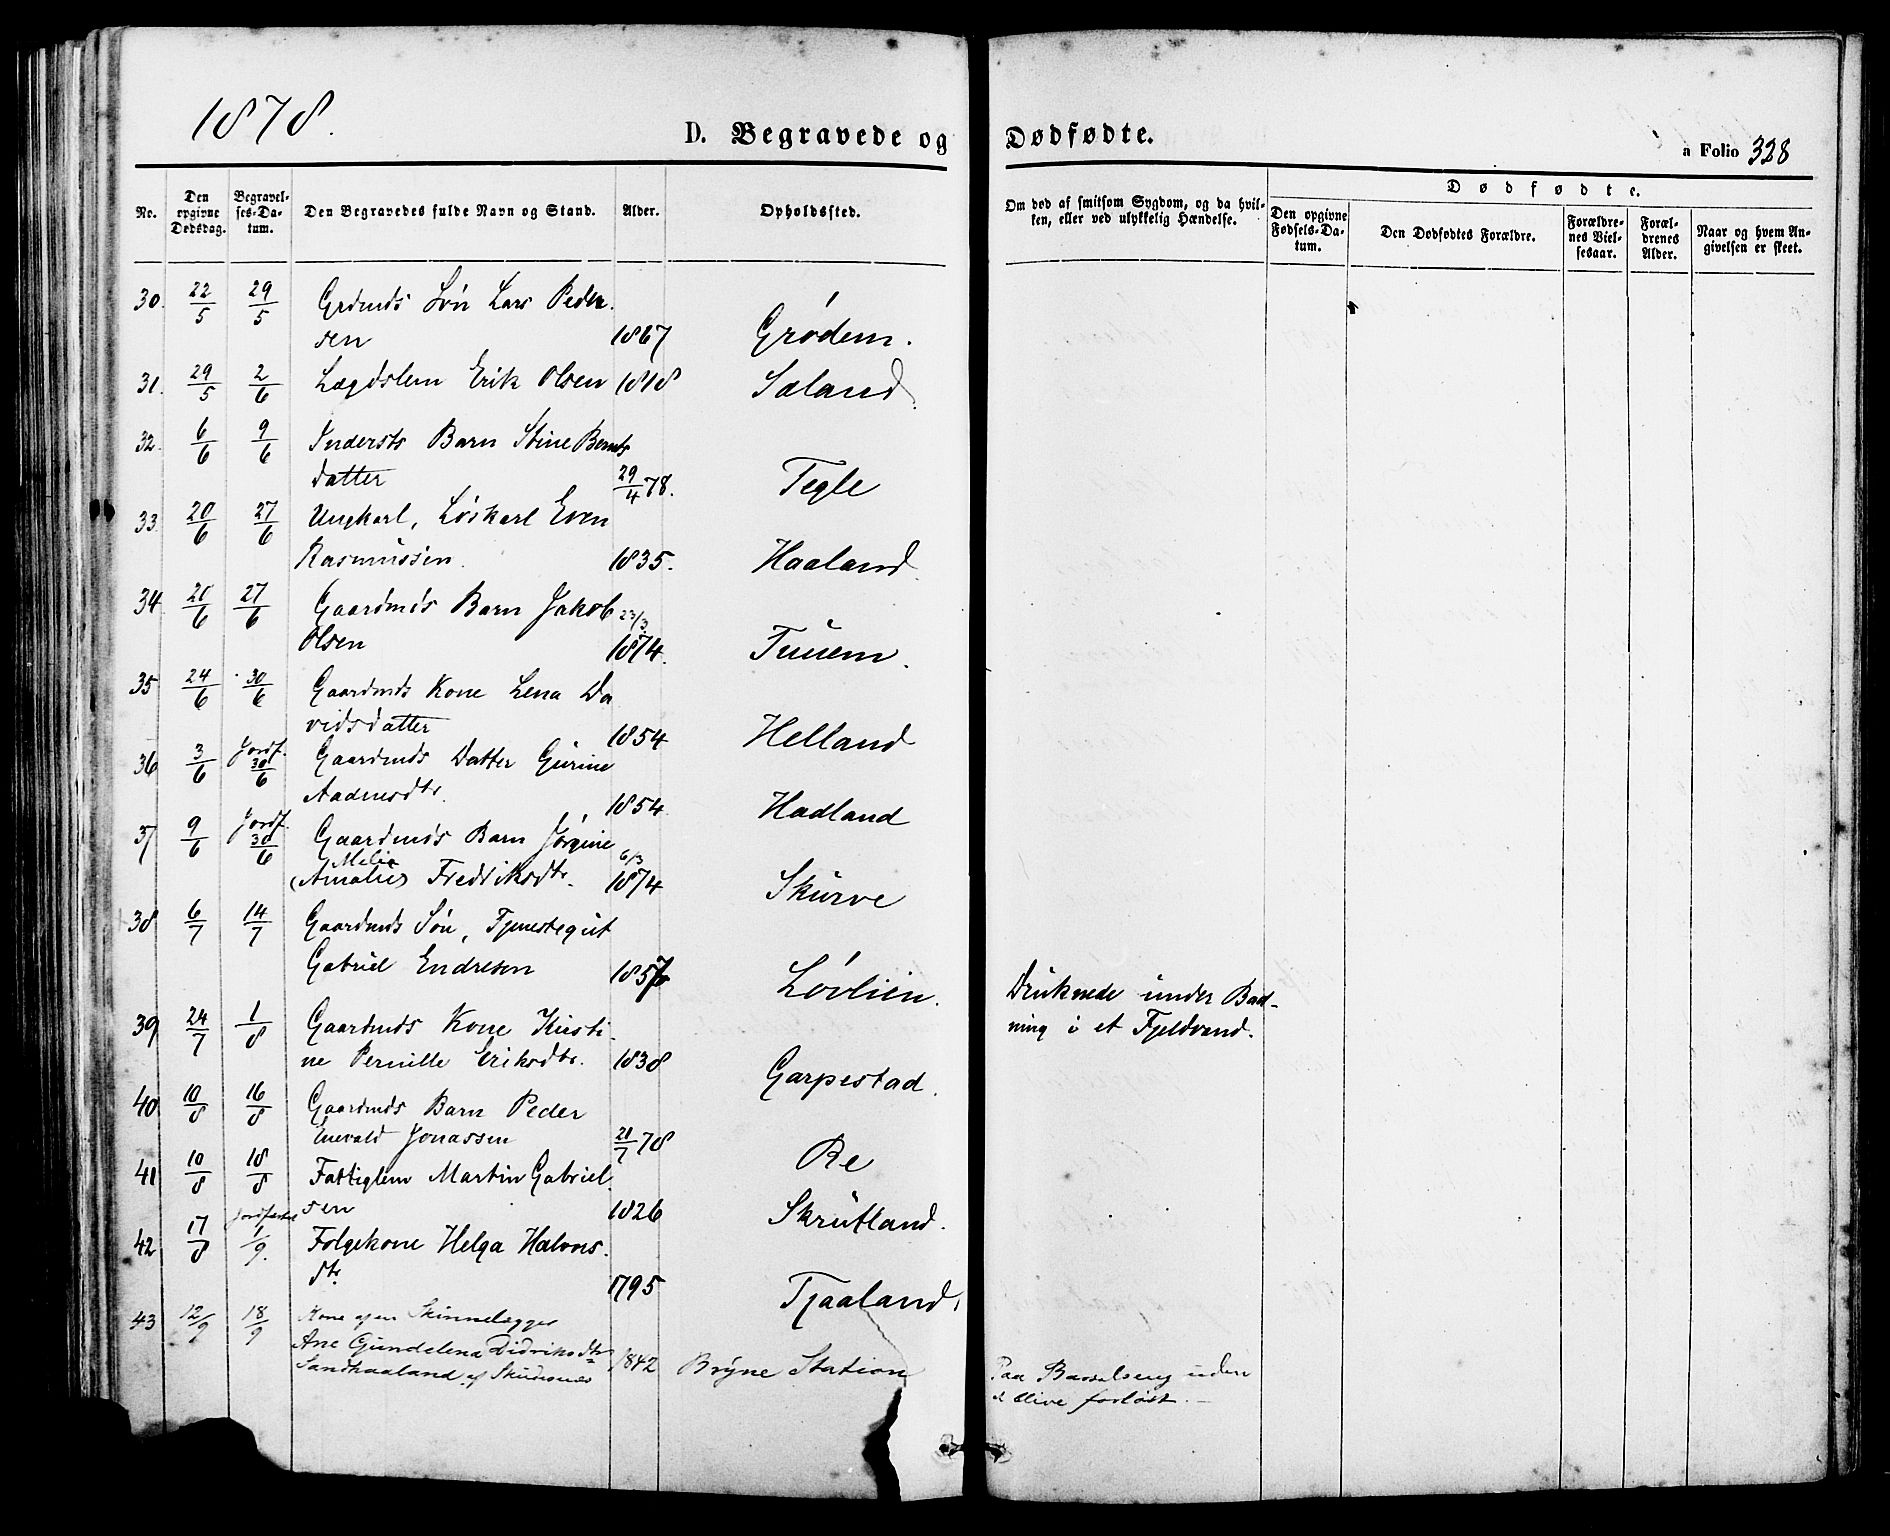 1878.
D. Begravede og Dødfødte.
a Folio 328
No.
Den opgivne Dødsdag.
Begravelses-Datum.
Den Begravedes fulde Navn og Stand.
Alder.
Opholdssted.
Om død af smitsom Sygdom, og da hvilken, eller ved ulykkelig Hændelse.
Dødfødte.
Den opgivne Fødsels-Datum.
Den Dødfødtes Forældre.
Forældrenes Vielsesaar.
Forældrenes Alder.
Naar og hvem Angivelsen er skeet.
30. 22/5 29/5 Grdmds Søn Lars Peder-
sen 1867 Grødem.
31. 29/5 2/6 Lægdslem Erik Olsen 1818 Sæland.
32. 6/6 9/6 Indersts Barn Stine Bernts
datter 29/4 78. Tegle
33. 20/6 27/6 Ungkarl, Løskarl Even
Rasmussen. 1835. Haaland.
34 21/6 27/6 Gaardmds Barn Jakob 23/3
Olsen 1874. Tunem.
35 24/6 30/6 Gaardmds Kone Lena Da
vidsdatter 1854 Helland
36 3/6 Jordf. 30/6 Gaardmds Datter Gurine
Aadnesdtr. 1854. Hadland
37 9/6 Jordf. 30/6 Gaardmds Barn Jørgine 6/3
Melia
(Amalie) Fredriksdtr. 1874 Skurve
38 6/7 14/7 Gaardmds Søn, Tjenestegut
Gabriel Endresen 1857 Løvlien. Druknede under Bad-
ning i et Fjeldvand.
39 24/7 1/8 Gaardmds Kone Kristi-
ne Pernille Eriksdtr. 1838 Garpestad.
40 10/8 16/8 Gaardmds Barn Peder
Enevald Jonassen 21/7 78 Re
41 10/8 18/8 Fattiglem Martin Gabriel
sen 1826 Skrutland.
42 17/8 Jordfæstet 1/9. Folgekone Helga Halvors-
dtr 1795 Tjaaland,
43 12/9 18/9 Kone af en Skinnelægger
Ane Gundelena Didriksdtr
Sandhaaland af Skudesnes 1842 Bryne Station Paa Barselseng uden
at blive forløst. —